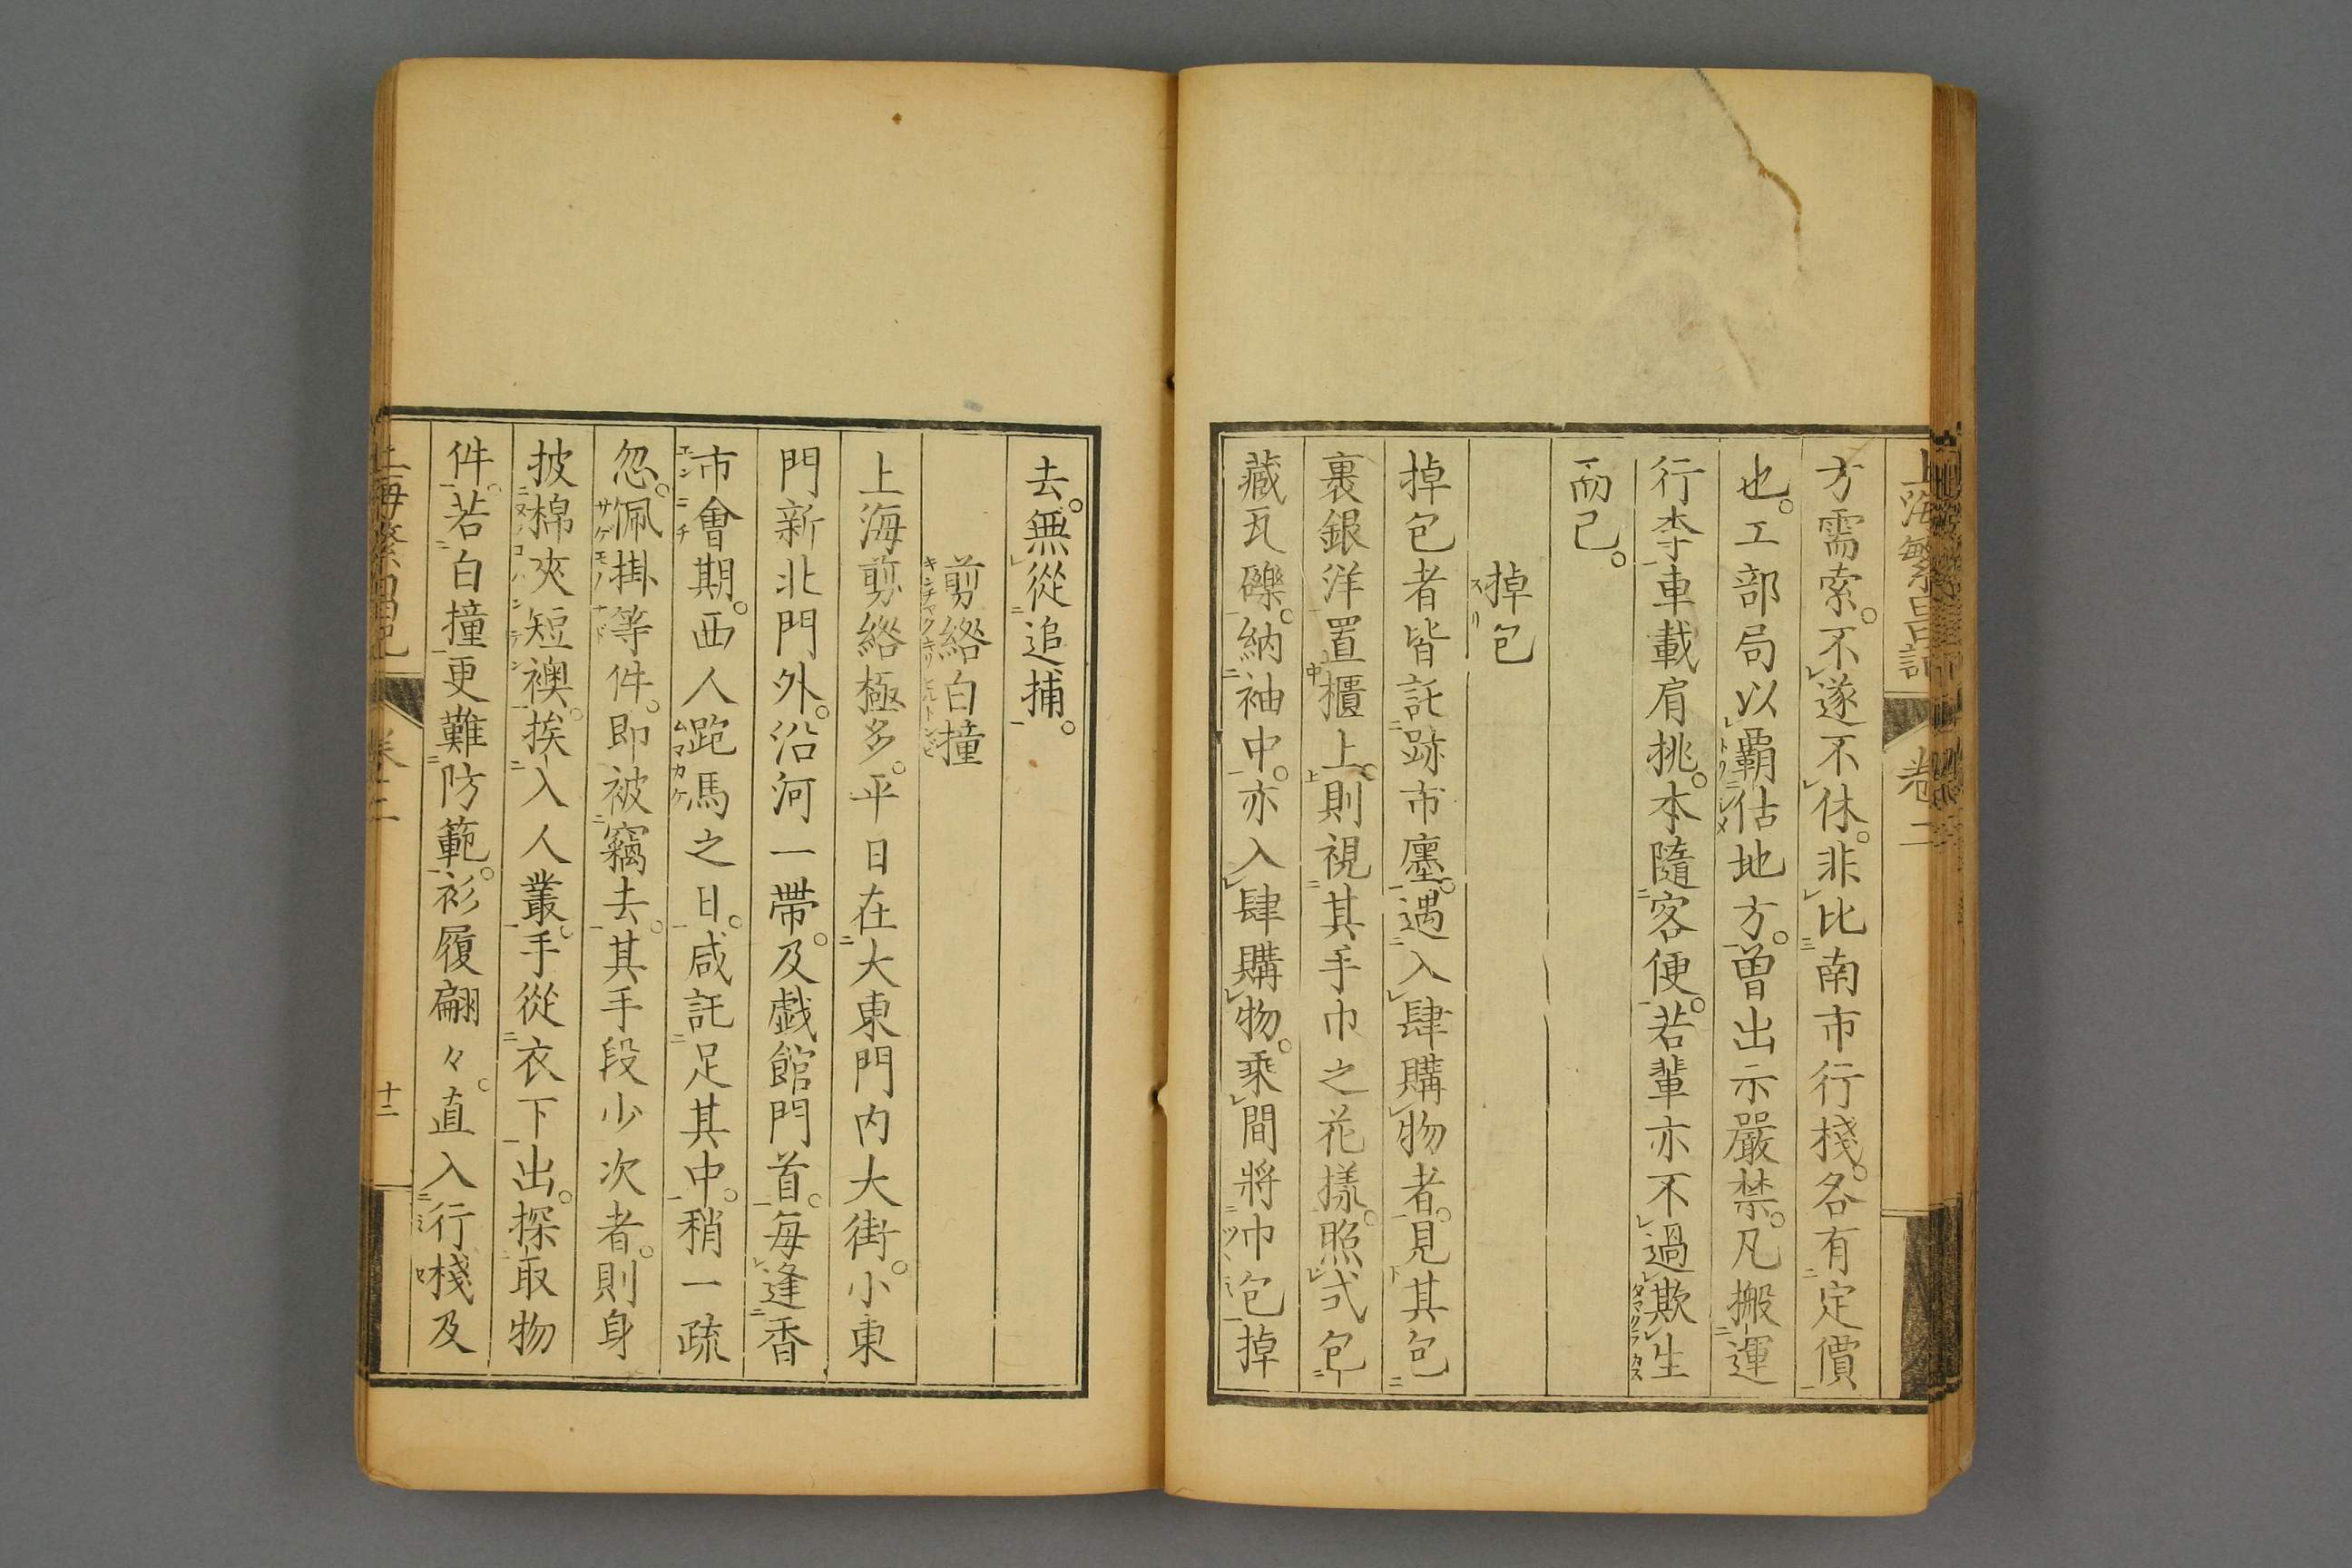 上海繁昌記 卷二
方需索。不遂不休。非比南市行棧。各有定價
也。工部局以覇估地方。曽出示嚴禁。凡搬運
行李車載肩挑。本隨客便。若輩亦不過欺生
而已。
掉包
掉包者皆託跡市廛。遇入肆購物者。見其包
裹銀洋置櫃上。則視其手巾之花樣。照式包
藏瓦礫。納袖中。亦入肆購物。乘間將巾包掉
去。無從追捕。
剪綹白撞
上海剪綹極多。平日在大東門内大街。小東
門新北門外。沿河一帶。及戯館門首。每逢香
市會期。西人跑馬之日。咸託足其中。稍一疏
忽。佩掛等件。即被竊去。其手段少次者。則身
披棉夾短襖。挨入人叢。手從衣下出。探取物
件。若白撞更難防範。衫履翩々。直入行棧及
上海繁昌記 卷二 十二